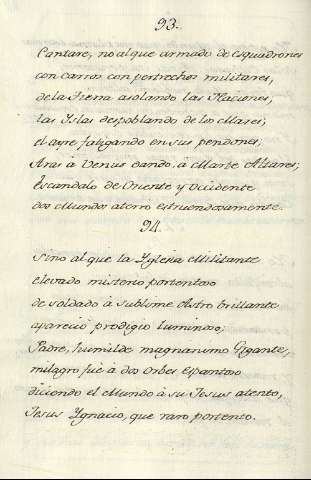 93.
Cantare, no al que armado de esquadrones
con carros con pertrechos militares,
de la tierra asolando las Naciones,
las Islas despoblando de los Mares;
el ayre fatigando en sus pendones;
Aras à Venus dando, à Marte Altares;
Escandalo de Oriente y Occidente
dos Mundos aterrò estruendosamente.
94.
Sino al que la Iglesia Militante
elevado misterio portentoso
de soldado à sublime Astro brillante
apareciò prodigio luminoso,
Padre, humilde magnanimo Gigante,
milagro fuè à dos Orbes espantoso
diciendo el Mundo à su Jesus atento,
Jesus Ignacio, que raro portento.